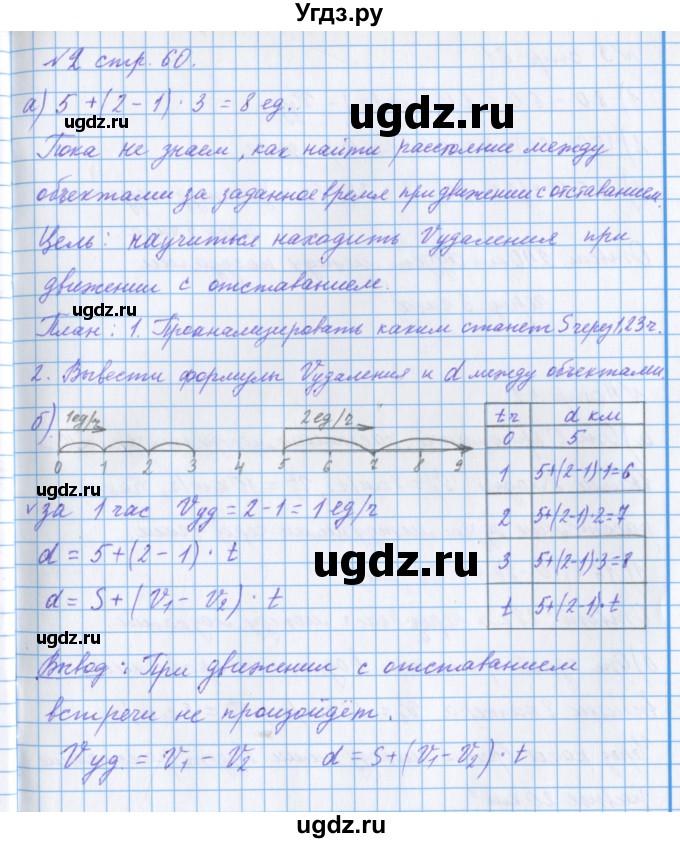 Угдз.ру
№2 стр. 60.
а) 5 + (2 - 1) · 3 = 8 ед..
ugdz.ru
ugdz.ru
ugdz.ru
Пока не знаем, как найти расстояние между
объектами за заданное время при движении с отставанием.
Цель: научиться находить Vудаления при
движении с отставанием.
ugdz.ru
ugdz.ru
План: 1. Проанализировать каким станет S через 1,2,3 ч.
2. Вывести формулы Vудаления и d между объектами.
б) 1 ед/ч 2 ед/ч
0 1 2 3 4 5 6 7 8 9
t ч d км
0 5
1 5+(2-1)·1=6
2 5+(2-1)·2=7
3 5+(2-1)·3=8
t 5+(2-1)·t
ugdz.ru
за 1 час Vуд = 2 - 1 = 1 ед/ч
d = 5 + (2 - 1) · t
ugdz.ru
ugdz.ru
d = S + (V₁ - V₂) · t
ugdz.ru
Вывод: При движении с отставанием
встречи не произойдёт.
ugdz.ru
ugdz.ru
Vуд = V₁ - V₂ d = S + (V₁ - V₂) · t
ugdz.ru
ugdz.ru